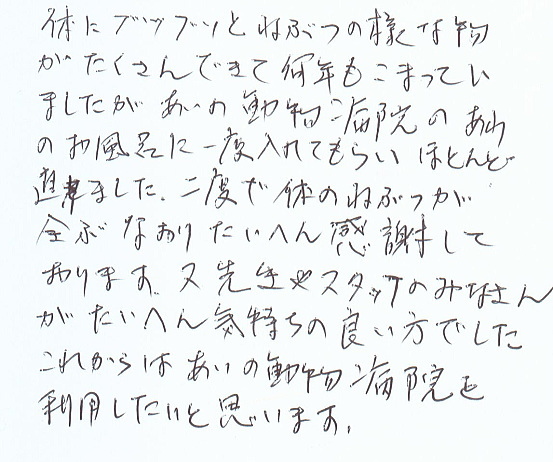 体にブツブツとねぶつの様な物
がたくさんできて何年もこまってい
ましたが あいの動物病院のあわ
のお風呂に一度入れてもらいほとんど
直りました、二度で体のねぶつが
全ぶなおりたいへん感謝して
おります。又先生やスタッフのみなさん
がたいへん気持ちの良い方でした
これからはあいの動物病院を
利用したいと思います。